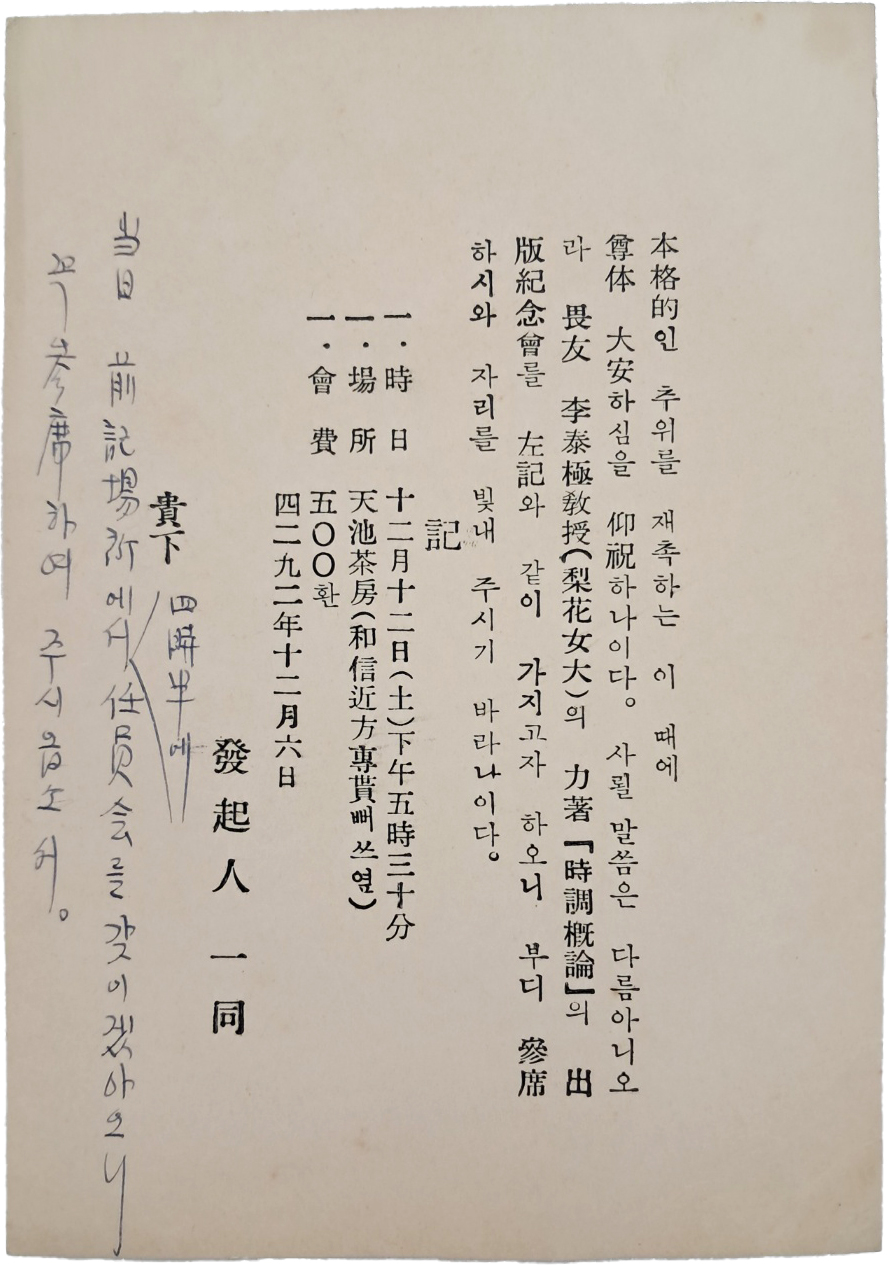 本格的인 추위를 재촉하는 이 때에
尊体 大安하심을 仰祝하나이다。 사뢸 말씀은 다름아니오
라 畏友 李泰極敎授(梨花女大)의 力著『時調槪論』의 出
版紀念會를 左記와 같이 가지고자 하오니 부디 參席
하시와 자리를 빛내 주시기 바라나이다。
記
一・時日 十二月十二日(土)下午五時三十分
一・場所 天池茶房(和信近方專賣뻐쓰옆)
一・會費 五〇〇환
四二九二年十二月六日
發起人 一同
貴下
四時半에
当日 前記場所에서 任員会를 갖이겠아오니
꼭 參席하여 주시옵소서。